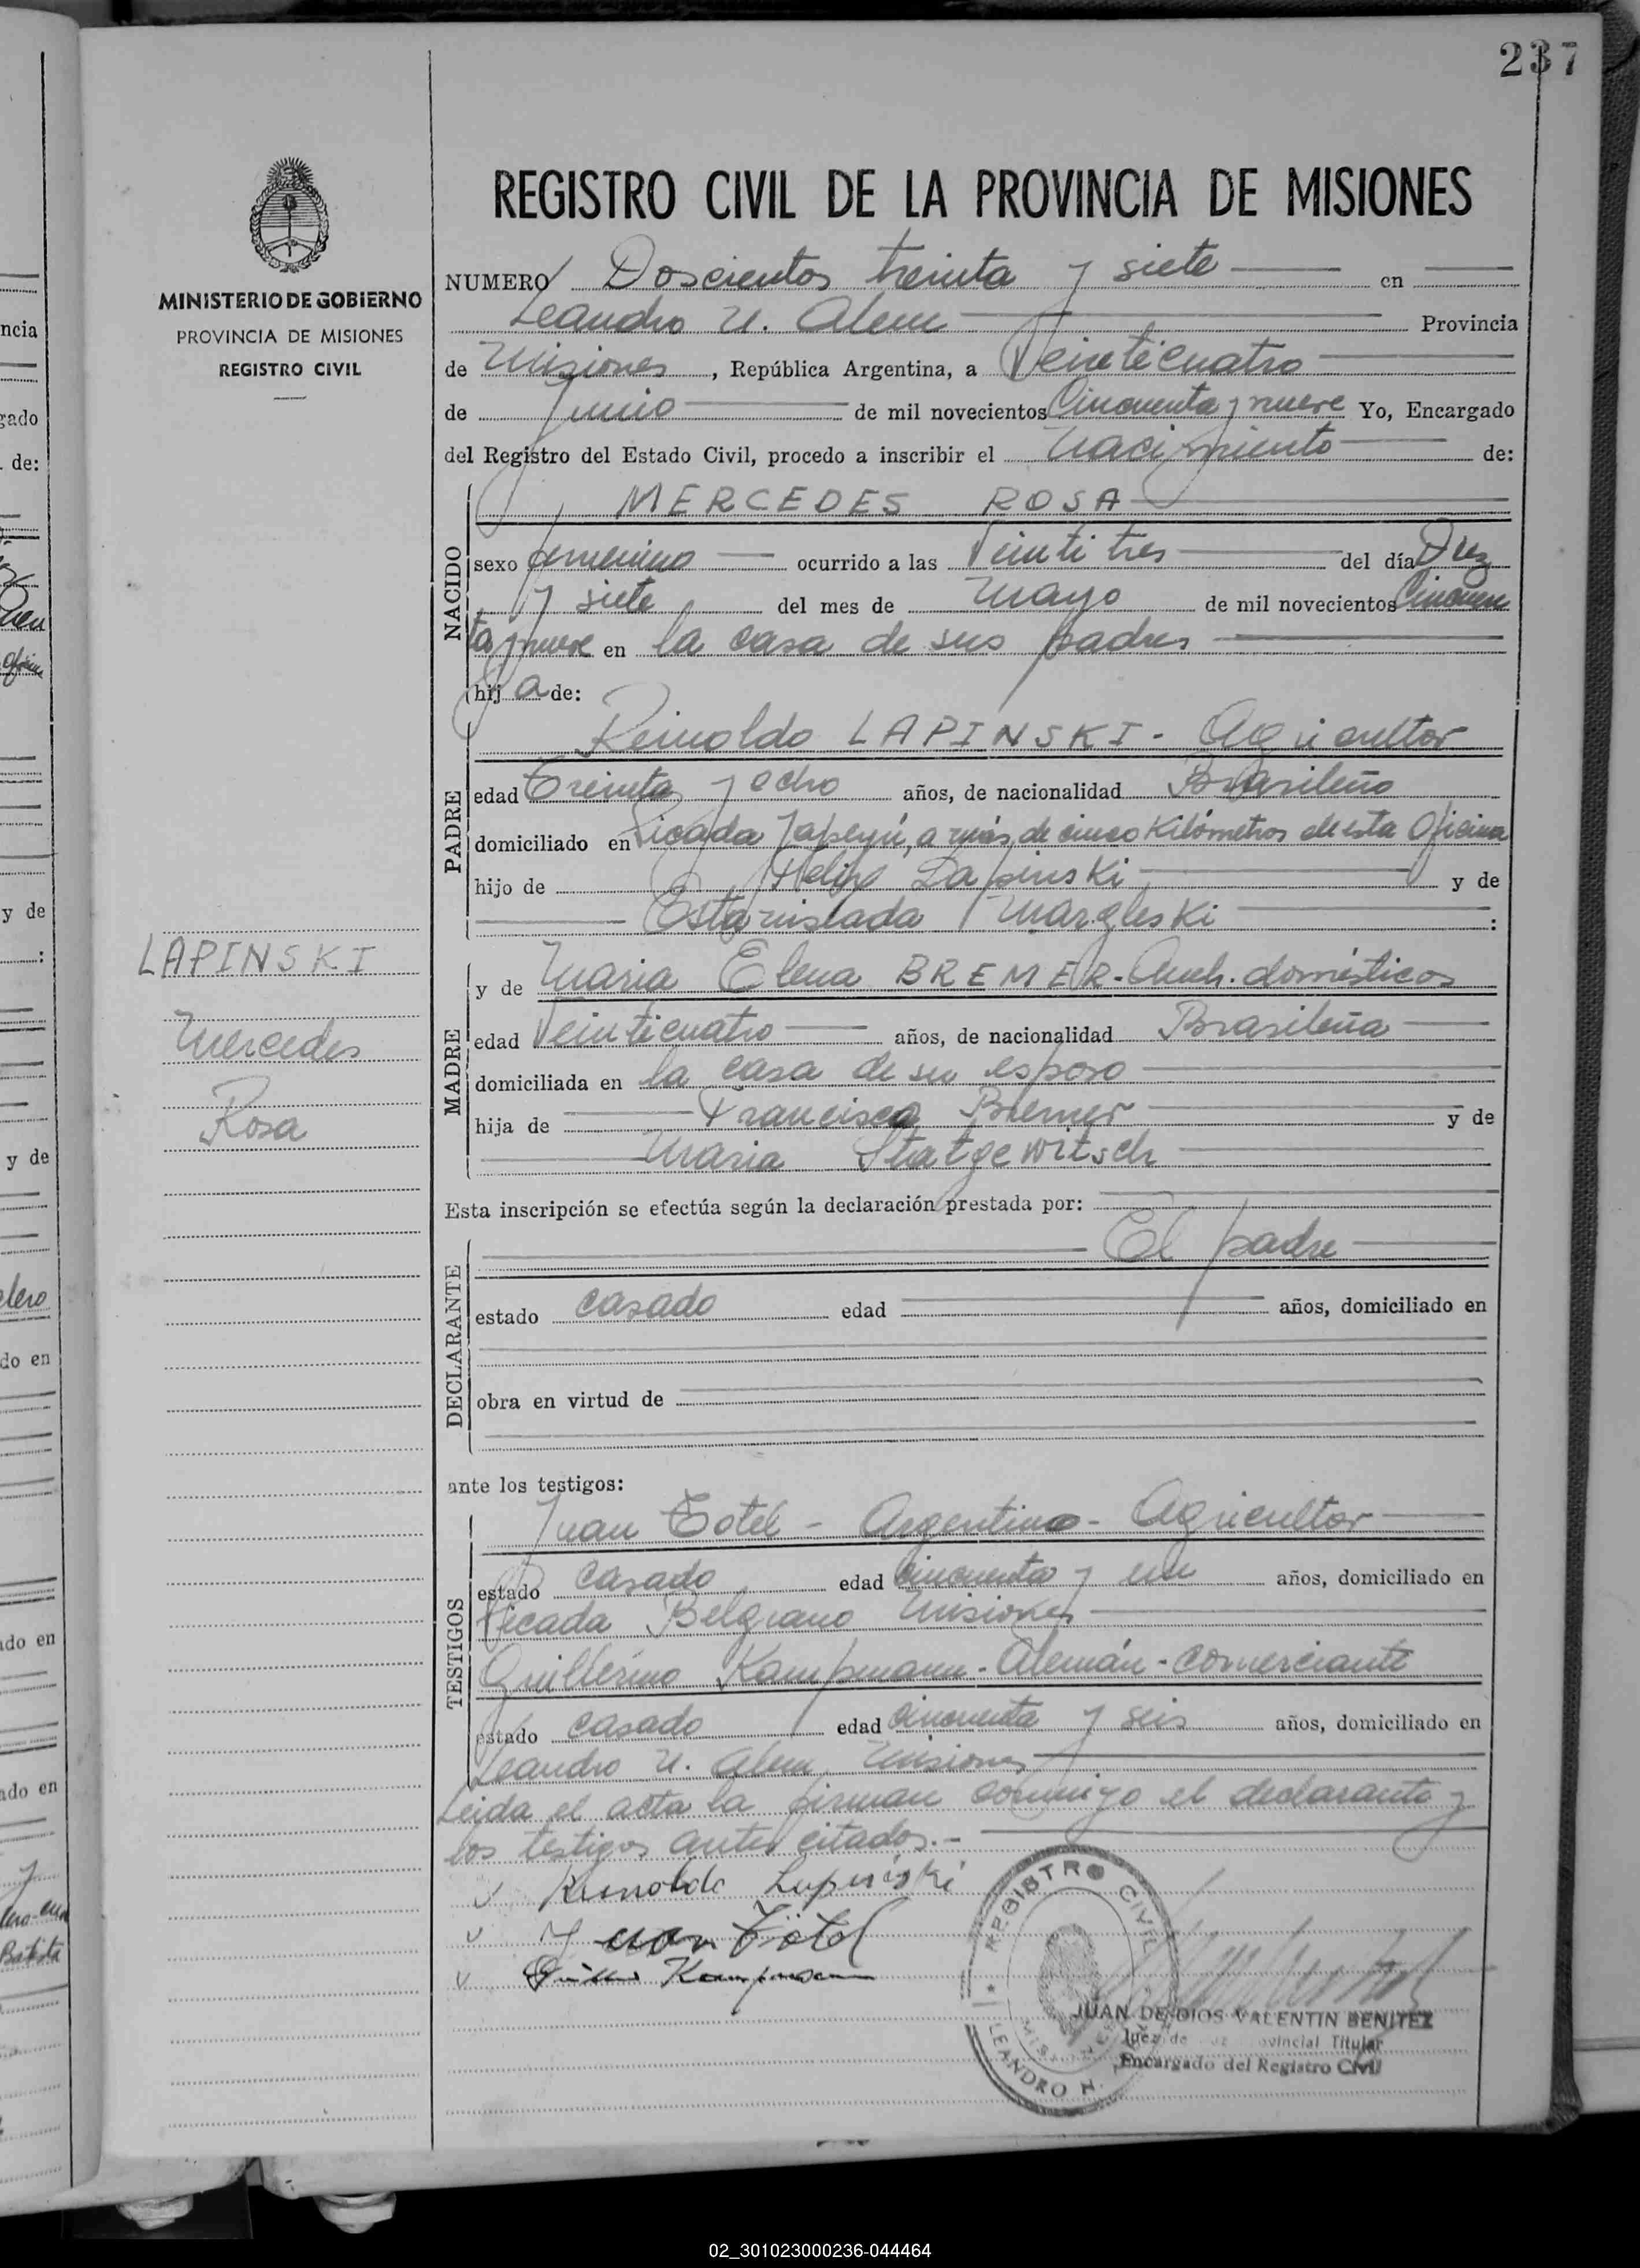 237
MINISTERIO DE GOBIERNO
PROVINCIA DE MISIONES
REGISTRO CIVIL
REGISTRO CIVIL DE LA PROVINCIA DE MISIONES
NUMERO Doscientos treinta y siete en
Leandro N. Alem Provincia
de Misiones, República Argentina, a Veinticuatro
de Junio de mil novecientos Cincuenta y nueve Yo, Encargado
del Registro del Estado Civil, procedo a inscribir el Nacimiento de:
NACIDO
MERCEDES ROSA
sexo femenino ocurrido a las Veinti tres del día Diez
y siete del mes de Mayo de mil novecientos Cincuen
ta y nueve en la casa de sus padres
hija de:
PADRE
Reinoldo LAPINSKI - Agricultor
edad Treinta y ocho años, de nacionalidad Brasileño
domiciliado en Picada Yapeyú, a más de cinco Kilómetros de esta Oficina
hijo de Felipe Lapinski y de
Estanislada Margleski :
LAPINSKI
Mercedes
Rosa
MADRE
y de Maria Elena BREMER - Queh. domésticos
edad Veinticuatro años, de nacionalidad Brasileña
domiciliada en la casa de su esposo
hija de Francisco Bremer y de
Maria Statgewitsch
Esta inscripción se efectúa según la declaración prestada por:
DECLARANTE
El padre
estado casado edad años, domiciliado en
obra en virtud de
ante los testigos:
TESTIGOS
Juan Totel - Argentino - Agricultor
estado casado edad cincuenta y un años, domiciliado en
Picada Belgrano Misiones
Guillermo Kampmann - Alemán - comerciante
estado casado edad cincuenta y seis años, domiciliado en
Leandro N. Alem, Misiones
Leida el acta la firman conmigo el declarante y
los testigos antes citados.-
Reinoldo Lapinski
Juan Tötel
Kampmann
REGISTRO CIVIL
LEANDRO N.
JUAN DE DIOS VALENTIN BENITEZ
Juez de Provincial Titular
Encargado del Registro Civil
ncia
gado
de:
y de
:
y de
do en
ado en
ado en
Batista
02_301023000236-044464